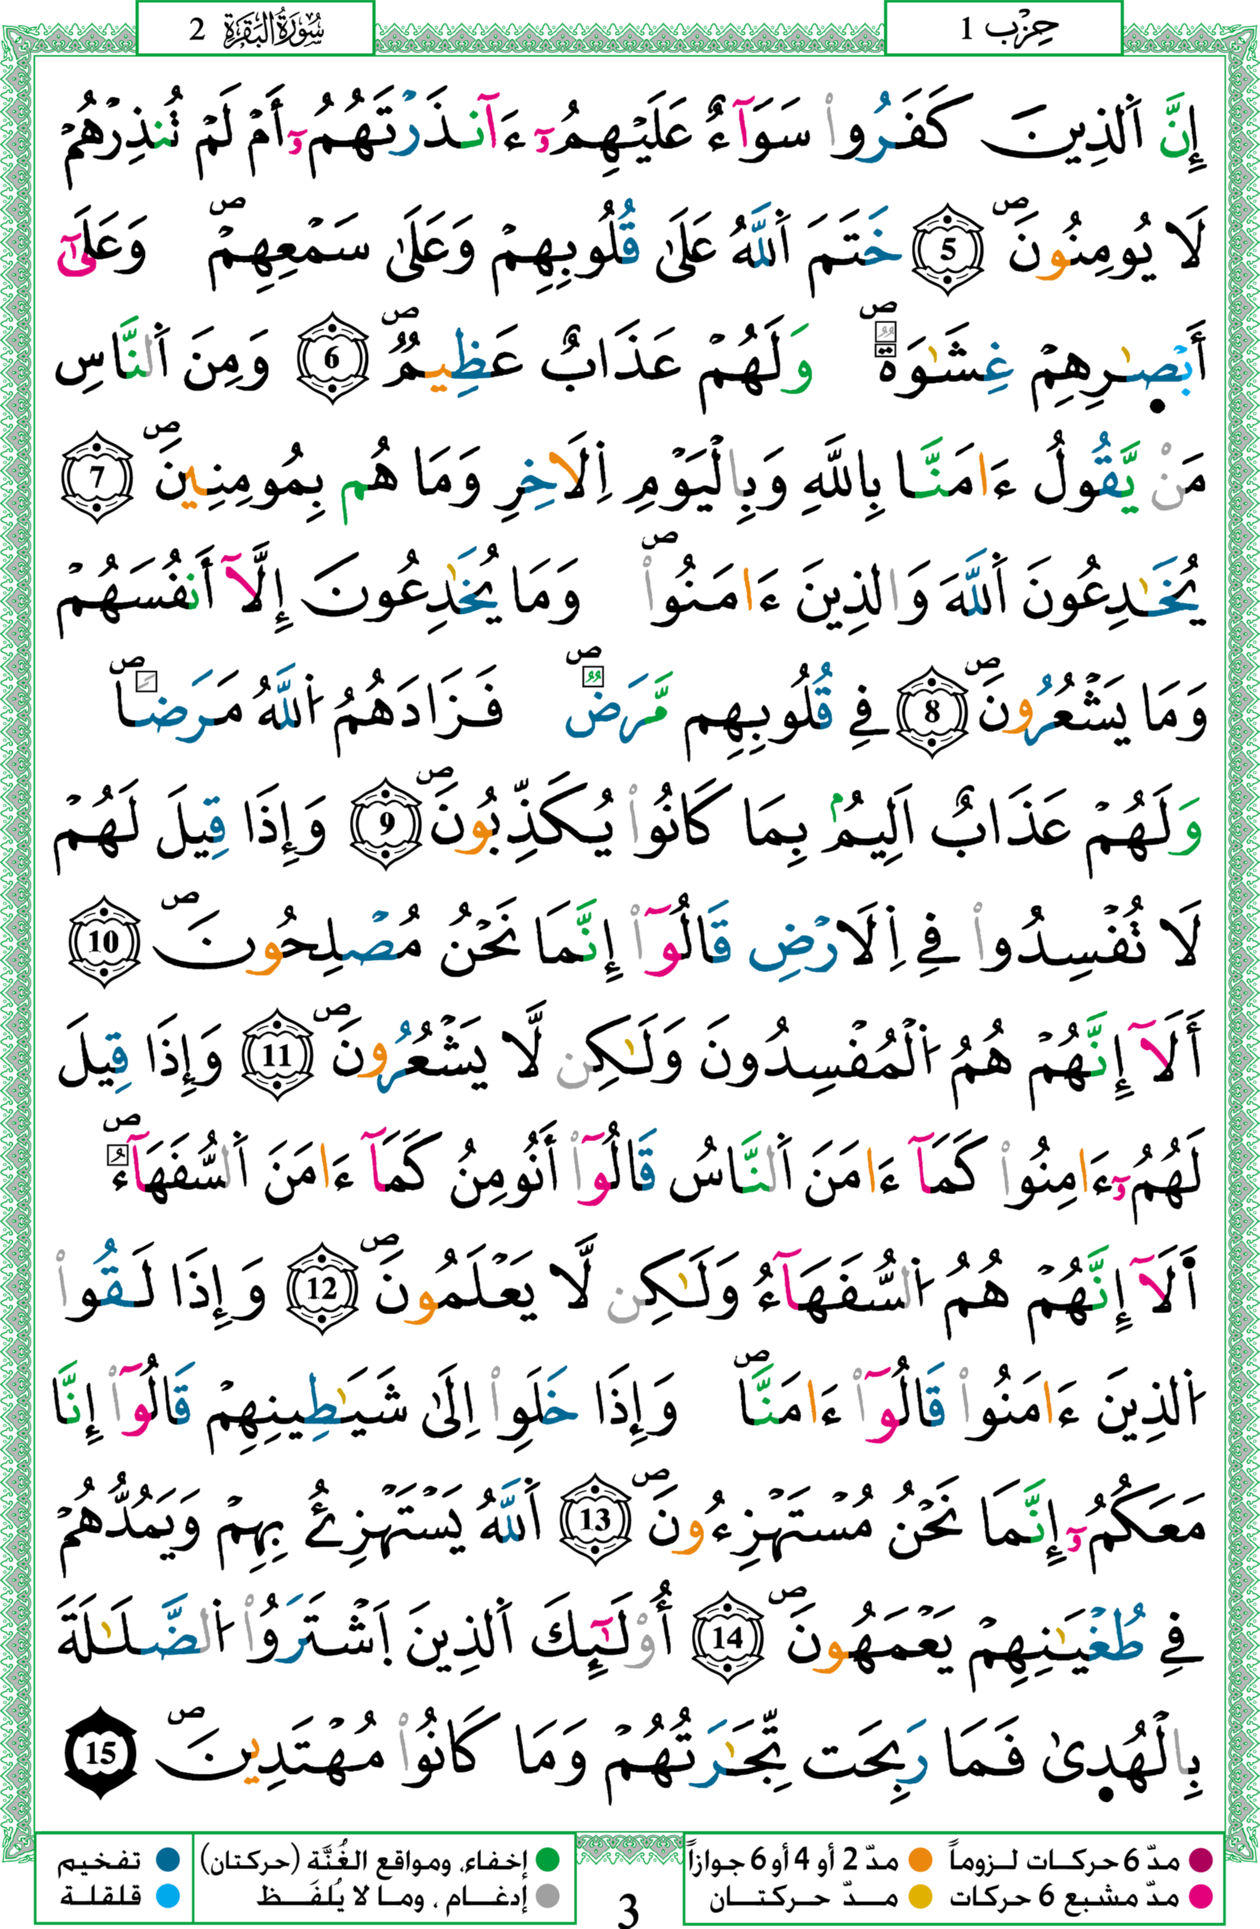 حِزْب 1
سُورَةُ البَقَرَةِ 2
إِنَّ اَ۬لذِينَ كَفَرُواْ سَوَآءٌ عَلَيْهِمُۥٓ ءَآنذَرْتَهُمُۥٓ أَمْ لَمْ تُنذِرْهُمْ
لَا يُومِنُونَۖ 5 خَتَمَ اَ۬للَّهُ عَلَىٰ قُلُوبِهِمْ وَعَلَىٰ سَمْعِهِمْۖ وَعَلَىٰٓ
أَبْصٰ۪رِهِمْ غِشَٰوَةٞۖ وَلَهُمْ عَذَابٌ عَظِيمٞۖ 6 وَمِنَ اَ۬لنَّاسِ
مَنْ يَّقُولُ ءَامَنَّا بِاللَّهِ وَبِالْيَوْمِ اِ۬لَاخِرِ وَمَا هُم بِمُومِنِينَۖ 7
يُخَٰدِعُونَ اَ۬للَّهَ وَالذِينَ ءَامَنُواْۖ وَمَا يُخَٰدِعُونَ إِلَّآ أَنفُسَهُمْ
وَمَا يَشْعُرُونَۖ 8 فِے قُلُوبِهِم مَّرَضٞۖ فَزَادَهُمُ اُ۬للَّهُ مَرَضاٗۖ
وَلَهُمْ عَذَابٌ اَلِيمُۢ بِمَا كَانُواْ يُكَذِّبُونَۖ 9 وَإِذَا قِيلَ لَهُمْ
لَا تُفْسِدُواْ فِے اِ۬لَارْضِ قَالُوٓاْ إِنَّمَا نَحْنُ مُصْلِحُونَۖ 10
أَلَآ إِنَّهُمْ هُمُ اُ۬لْمُفْسِدُونَ وَلَٰكِن لَّا يَشْعُرُونَۖ 11 وَإِذَا قِيلَ
لَهُمُۥٓ ءَامِنُواْ كَمَآ ءَامَنَ اَ۬لنَّاسُ قَالُوٓاْ أَنُومِنُ كَمَآ ءَامَنَ اَ۬لسُّفَهَآءُۖ
أَلَآ إِنَّهُمْ هُمُ اُ۬لسُّفَهَآءُ وَلَٰكِن لَّا يَعْلَمُونَۖ 12 وَإِذَا لَقُواْ
اُ۬لذِينَ ءَامَنُواْ قَالُوٓاْ ءَامَنَّاۖ وَإِذَا خَلَوِاْ اِلَىٰ شَيَٰطِينِهِمْ قَالُوٓاْ إِنَّا
مَعَكُمُۥٓ إِنَّمَا نَحْنُ مُسْتَهْزِءُونَۖ 13 اَ۬للَّهُ يَسْتَهْزِۓُ بِهِمْ وَيَمُدُّهُمْ
فِے طُغْيَٰنِهِمْ يَعْمَهُونَۖ 14 أُوْلَٰٓئِكَ اَ۬لذِينَ اَ۪شْتَرَوُاْ اُ۬لضَّلَٰلَةَ
بِالْهُد۪ىٰ فَمَا رَبِحَت تِّجَٰرَتُهُمْ وَمَا كَانُواْ مُهْتَدِينَۖ 15
مدّ 6 حركات لـزوماً مدّ 2 أو 4 أو 6 جوازاً إخفاء، ومواقع الغُنَّة (حركتان) تفخيم
مدّ مشبع 6 حركات مـــدّ حـركتـــان إدغـام ، ومـا لا يُلفَـــظ قلقلـة
3